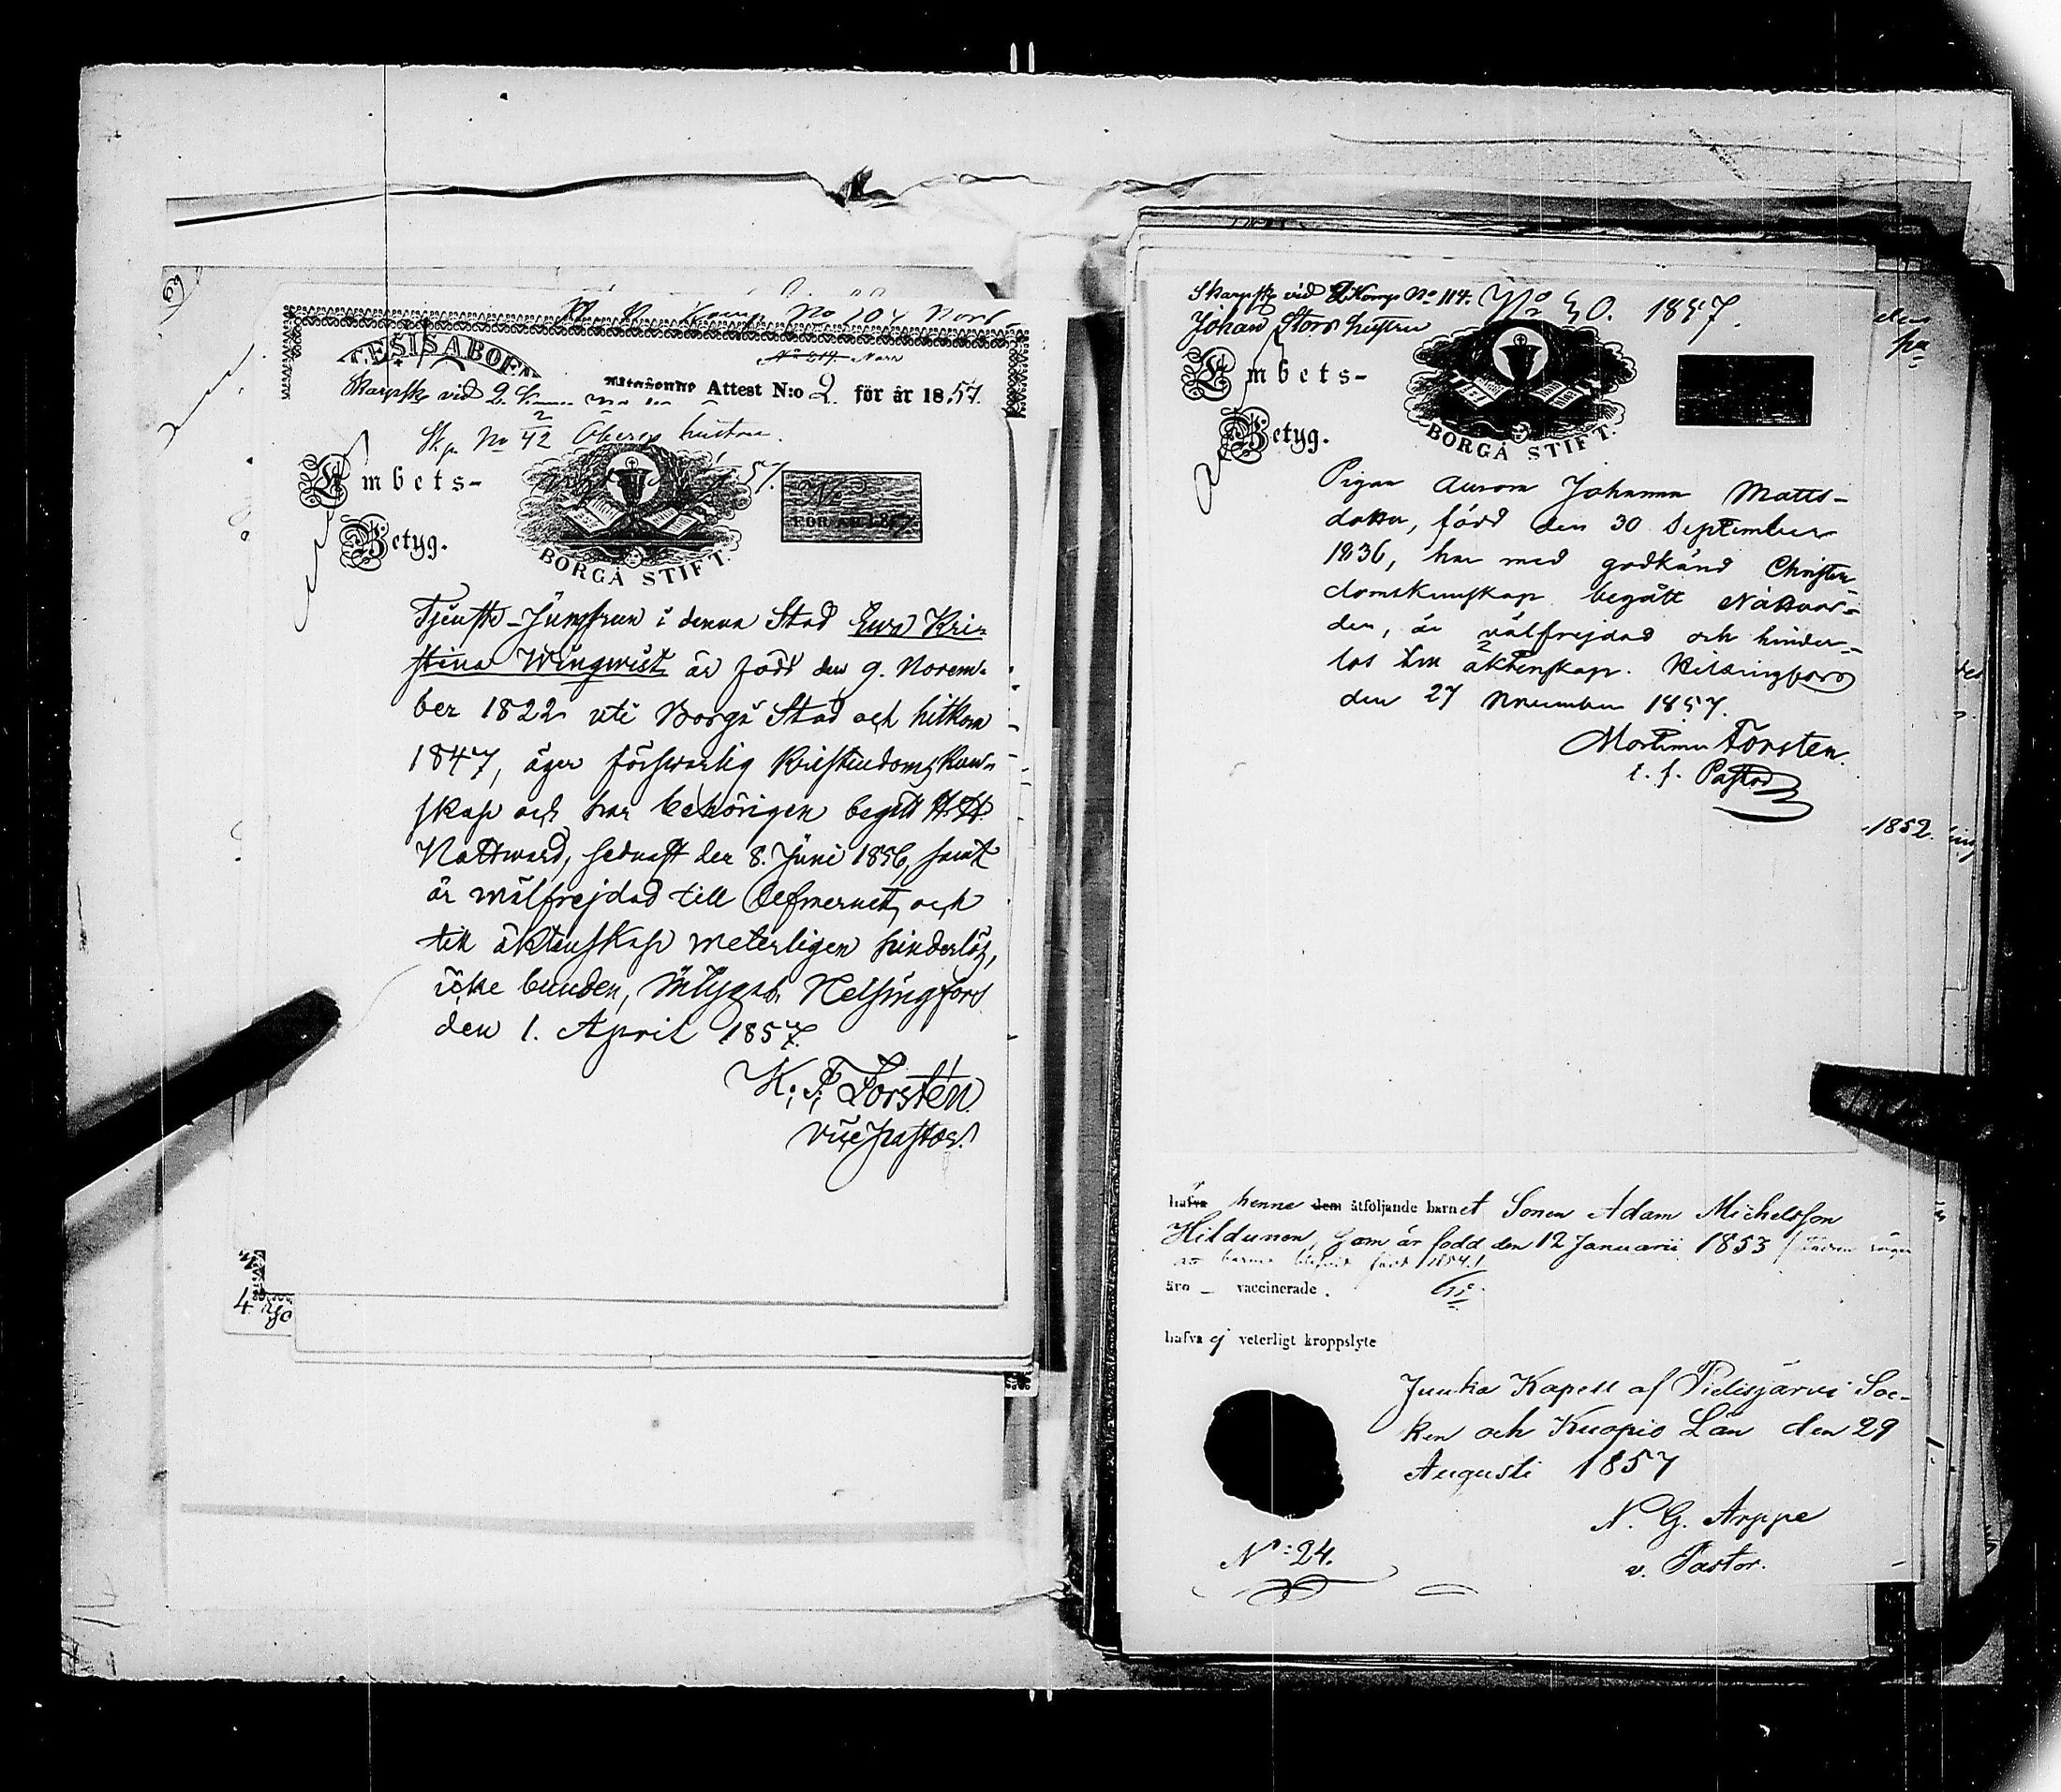 69
Komp. No 104 Nord
DIOECESIS ABOEN
Nord
Attest N:o 2 för år 1857.
Skarpsk. vid 2.
Sk. p. No 42 Öbergs hustru.
Embets-
Betyg.
No 1857.
FÖR ÅR 1857.
BORGÅ STIFT.
Tjenste-Jungfrun i denna Stad Ewa Kri-
stina Wingwist är född den 9. Novem-
ber 1822 uti Borgå Stad och hitkom
1847, äger förswarlig Kristendomskun-
skap och har behörigen begått H. H.
Nattward, sednast den 8. Juni 1856, samt
är wälfrejdad till lefwernet, och
till äktenskap weterligen hinderlös,
icke bunden, Helsingfors
den 1. April 1857.
K. F. Forstén.
vice pastor.
4
Skarpsk. vid 2 Komp. No 114.
Johan Stors hustru
No 50. 1857.
Embets-
Betyg.
BORGÅ STIFT.
Pigan Aurora Johanna Matts-
dotter, född den 30 September
1836, har med godkänd Christen-
domskunskap begått Nattvar-
den, är välfrejdad och hinder-
lös till äktenskap. Helsingfors
den 27 November 1857.
Forsten.
t. f. Pastor
1852.
hafva henne dem åtföljande barnet Sonen Adam Michelsson
Hildunen, som är född den 12 Januarii 1853
barnet född 1854!
äro – vaccinerade.
hafva ej veterligt kroppslyte
Juuka Kapell af Pielisjärvi Soc-
ken och Kuopio Län den 29
Augusti 1857
N. G. Arppe
v. Pastor.
No: 24.